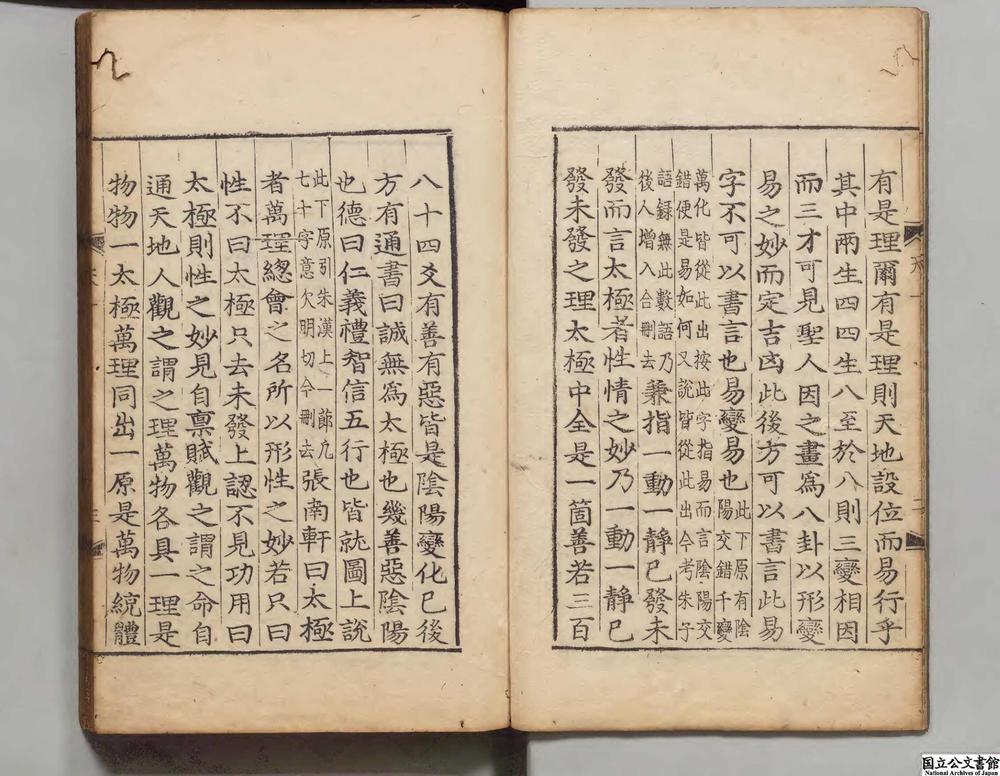 有是理爾有是理則天地設位而易行乎
其中兩生四四生八至於八則三變相因
而三才可見聖人因之畫爲八卦以形變
易之妙而定吉凶此後方可以書言此易
字不可以書言也易變易也此下原有陰
陽交錯千變
萬化皆從此出按此字指易而言陰陽交
錯便是易如何又說皆從此出今考朱子
語録無此數語乃
後人增入合刪去
兼指一動一靜已發未
發而言太極者性情之妙乃一動一靜已
發未發之理太極中全是一箇善若三百
八十四爻有善有惡皆是陰陽變化已後
方有通書曰誠無爲太極也幾善惡陰陽
也德曰仁義禮智信五行也皆就圖上說
此下原引朱漢上一節九
七十字意欠明切今刪去
張南軒曰太極
者萬理總會之名所以形性之妙若只曰
性不曰太極只去未發上認不見功用曰
太極則性之妙見自禀賦觀之謂之命自
通天地人觀之謂之理萬物各具一理是
物物一太極萬理同出一原是萬物統體
国立公文書館
National Archives of Japan